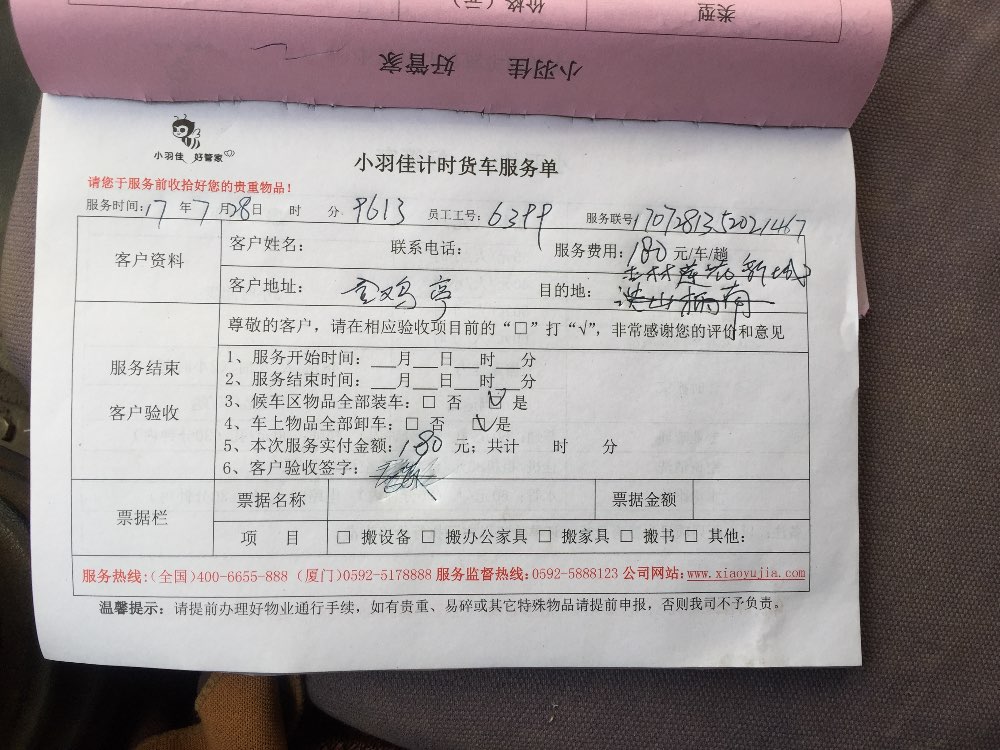 类型
价格（元）
小羽佳 好管家
小羽佳 好管家
小羽佳计时货车服务单
请您于服务前收拾好您的贵重物品！
服务时间：17 年 7 月 28 日 时 分 9613 员工工号：6399 服务联号 1707281352021467
客户资料
客户姓名： 联系电话： 服务费用：180 元/车/趟
客户地址：金鸡亭 目的地：
服务结束
客户验收
尊敬的客户，请在相应验收项目前的“□”打“√”，非常感谢您的评价和意见
1、服务开始时间：___月___日___时___分
2、服务结束时间：___月___日___时___分
3、候车区物品全部装车：□ 否 ☑ 是
4、车上物品全部卸车：□ 否 ☑是
5、本次服务实付金额：180 元；共计 时 分
6、客户验收签字：
票据栏
票据名称 票据金额
项 目 □ 搬设备 □ 搬办公家具 □ 搬家具 □ 搬书 □ 其他：
服务热线：（全国）400-6655-888（厦门）0592-5178888 服务监督热线：0592-5888123 公司网站：www.xiaoyujia.com
温馨提示：请提前办理好物业通行手续，如有贵重、易碎或其它特殊物品请提前申报，否则我司不予负责。